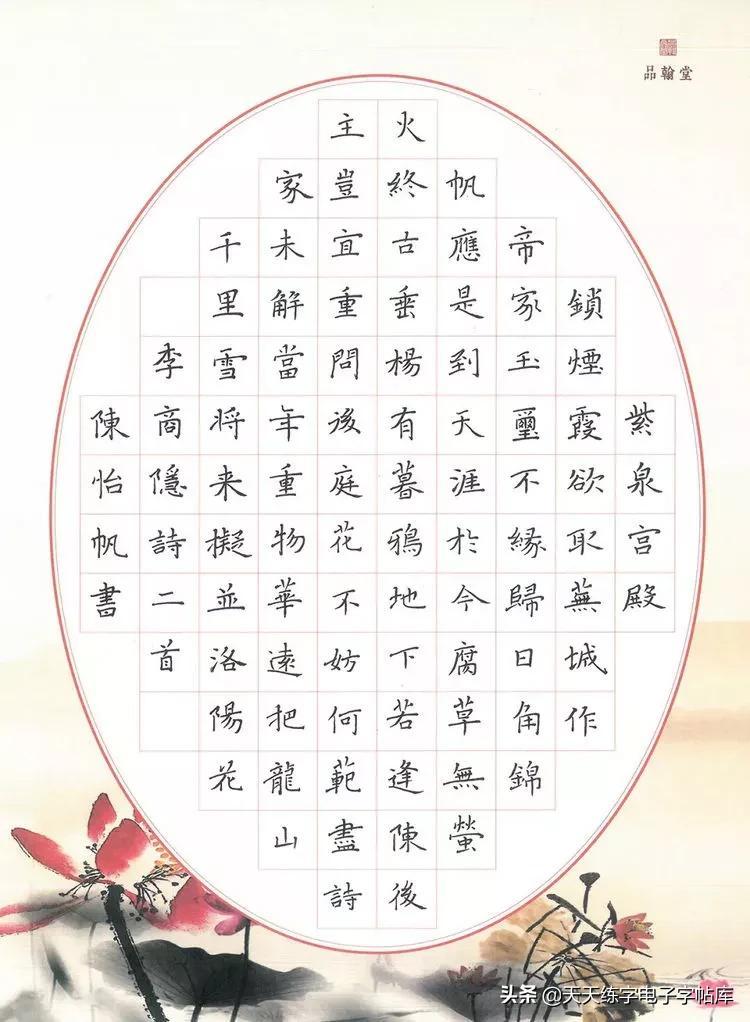 品翰堂
紫泉宫殿
鎖煙霞欲取蕪城作
帝家玉璽不緣歸日角錦
帆應是到天涯於今腐草無螢
火終古垂楊有暮鴉地下若逢陳後
主豈宜重問後庭花不妨何範盡詩
家未解當年重物華遠把龍山
千里雪将来擬並洛陽花
李商隱詩二首
陳怡帆書
头条 @天天练字电子字帖库